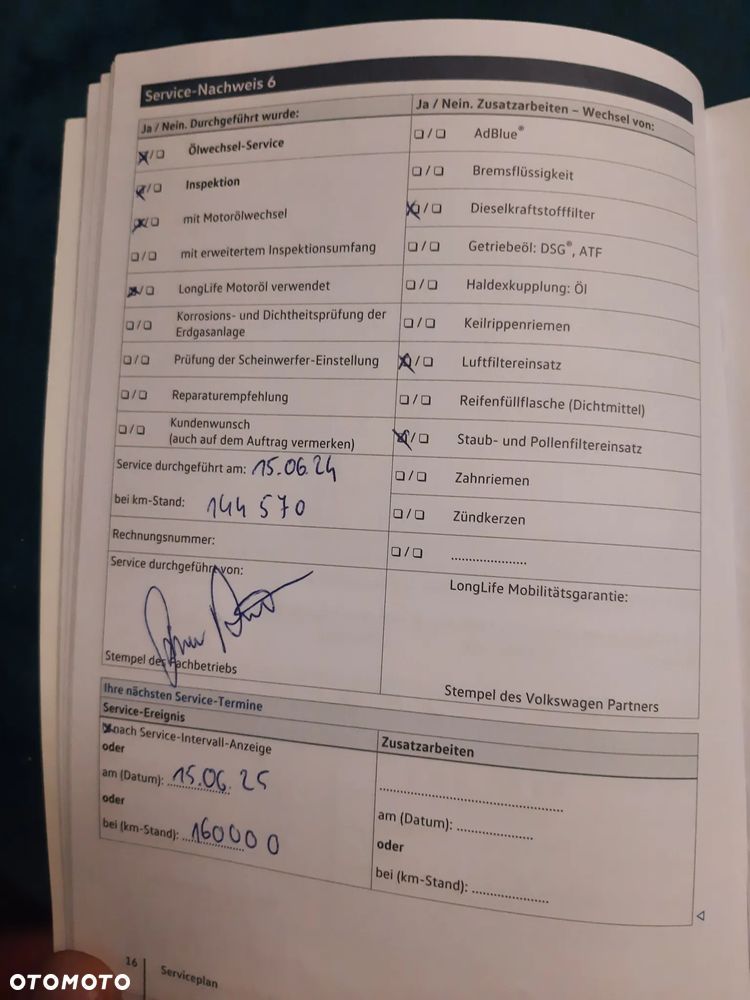 Service-Nachweis 6
Ja / Nein. Durchgeführt wurde:
☒/☐ Ölwechsel-Service
☒/☐ Inspektion
☒/☐ mit Motorölwechsel
☐/☐ mit erweitertem Inspektionsumfang
☒/☐ LongLife Motoröl verwendet
☐/☐ Korrosions- und Dichtheitsprüfung der
Erdgasanlage
☐/☐ Prüfung der Scheinwerfer-Einstellung
☐/☐ Reparaturempfehlung
☐/☐ Kundenwunsch
(auch auf dem Auftrag vermerken)
Service durchgeführt am: 15.06.24
bei km-Stand: 144 570
Rechnungsnummer:
Service durchgeführt von:
Stempel des Fachbetriebs
Ja / Nein. Zusatzarbeiten – Wechsel von:
☐/☐ AdBlue®
☐/☐ Bremsflüssigkeit
☒/☐ Dieselkraftstofffilter
☐/☐ Getriebeöl: DSG®, ATF
☐/☐ Haldexkupplung: Öl
☐/☐ Keilrippenriemen
☒/☐ Luftfiltereinsatz
☐/☐ Reifenfüllflasche (Dichtmittel)
☒/☐ Staub- und Pollenfiltereinsatz
☐/☐ Zahnriemen
☐/☐ Zündkerzen
☐/☐ .....................
LongLife Mobilitätsgarantie:
Stempel des Volkswagen Partners
Ihre nächsten Service-Termine
Service-Ereignis
☒ nach Service-Intervall-Anzeige
oder
am (Datum): 15.06.25
oder
bei (km-Stand): 160000
Zusatzarbeiten
..................................................
am (Datum): .....................
oder
bei (km-Stand): .....................
16
Serviceplan
OTOMOTO